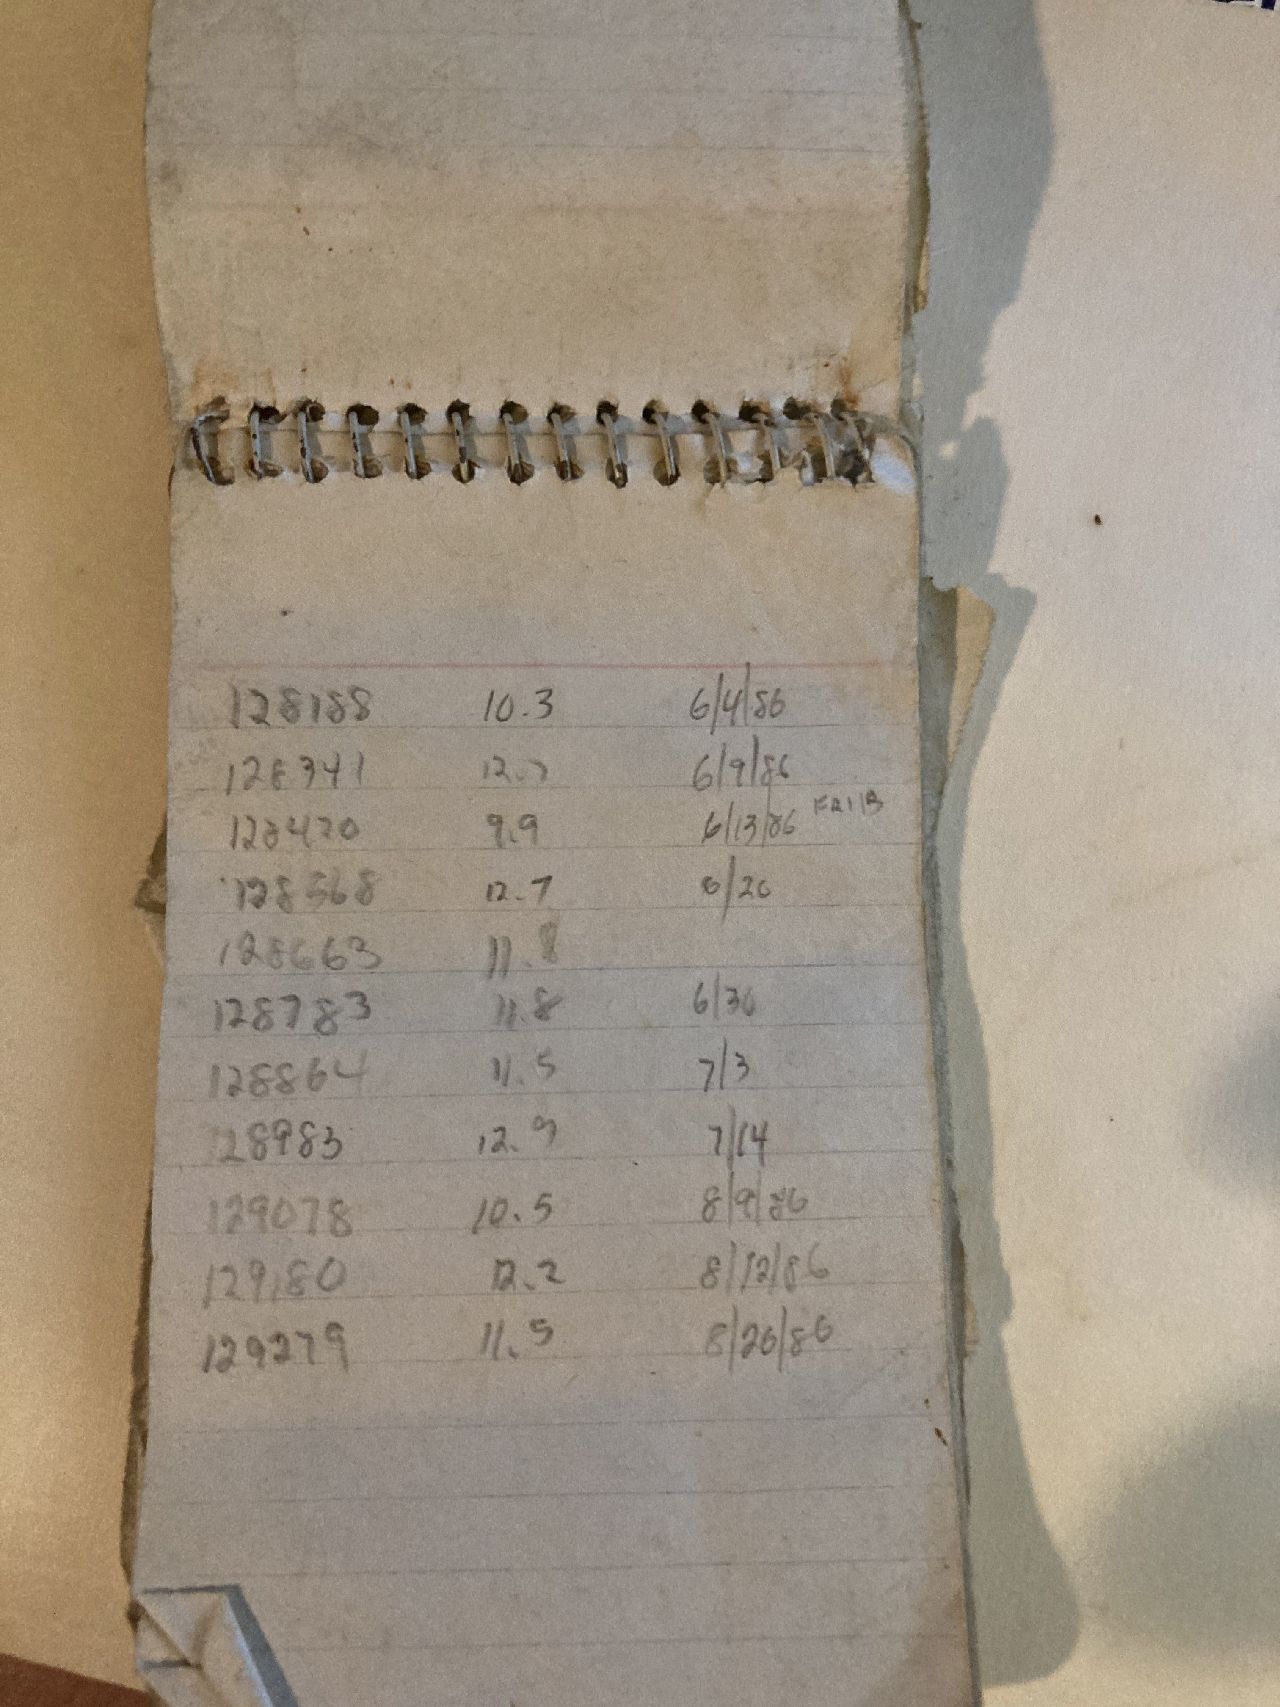 128188 10.3 6/4/86
128341 12.7 6/9/86
128470 9.9 6/13/86 FRI 13
128568 12.7 6/20
128663 11.8
128783 11.8 6/30
128864 11.5 7/3
128983 12.9 7/14
129078 10.5 8/9/86
129180 12.2 8/12/86
129279 11.5 8/20/86